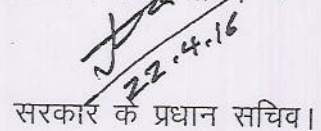 22.4.16
सरकार के प्रधान सचिव।